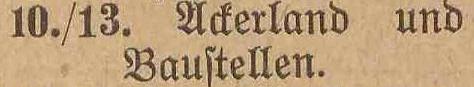 10./13. Ackerland und
Bauſtellen.